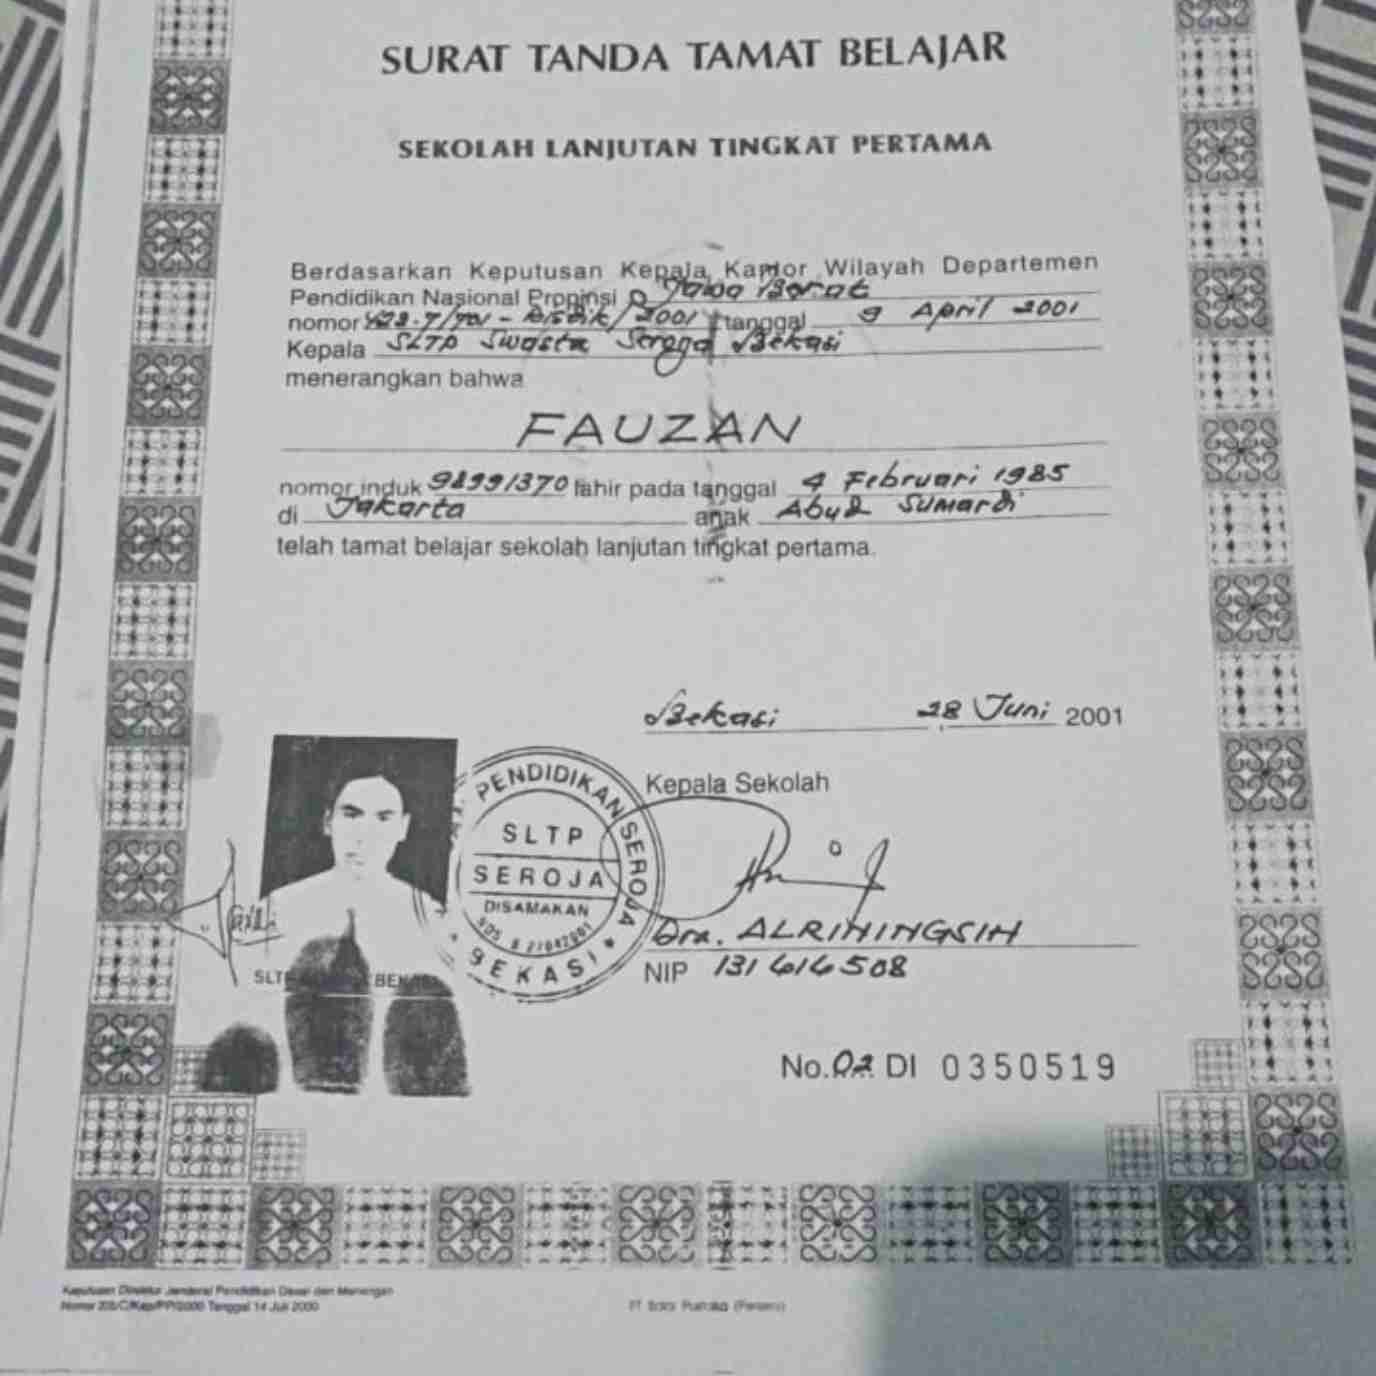 SURAT TANDA TAMAT BELAJAR
SEKOLAH LANJUTAN TINGKAT PERTAMA
Berdasarkan Keputusan Kepala Kantor Wilayah Departemen
Pendidikan Nasional Propinsi Jawa Barat
nomor 2001 tanggal 9 April 2001
Kepala SLTP Swasta Seroja Bekasi
menerangkan bahwa
FAUZAN
nomor induk 98991370 lahir pada tanggal 4 Februari 1985
di Jakarta anak Abud Sumardi
telah tamat belajar sekolah lanjutan tingkat pertama.
Bekasi, 28 Juni 2001
Kepala Sekolah
PENDIDIKAN SEROJA
SLTP
SEROJA
DISAMAKAN
BEKASI
Dra. ALRININGSIH
NIP 131616508
No. 02 DI 0350519
Keputusan Direktur Jenderal Pendidikan Dasar dan Menengah
Tanggal 14 Juli 2000